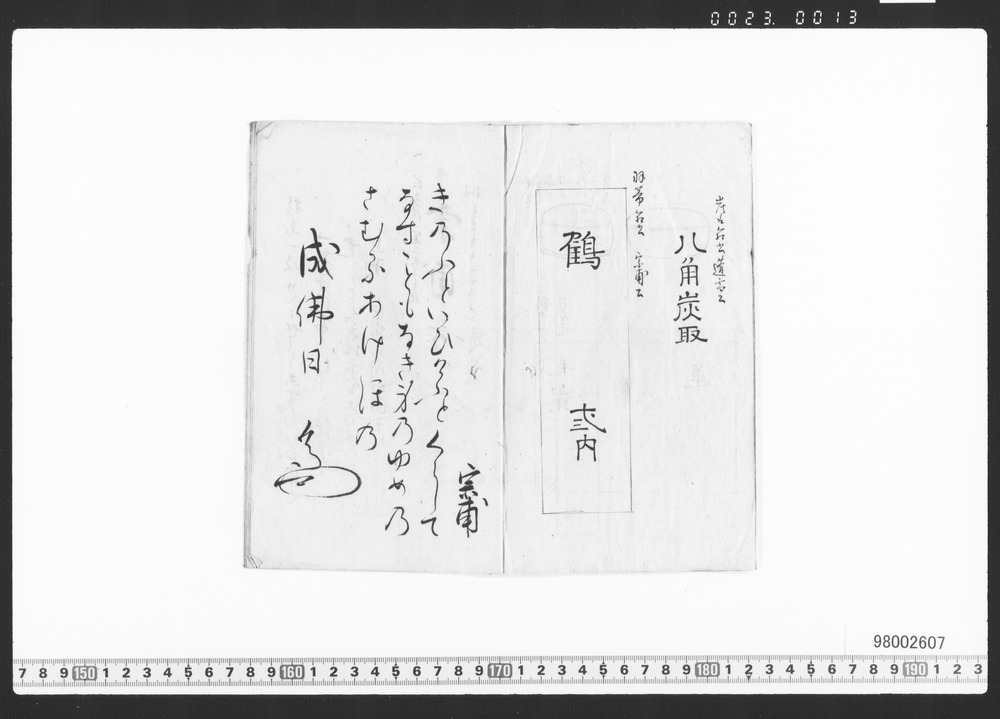 0023.0013
八角炭取
宗甫公
鶴
弐内
宗甫
きのふといひけふとくらして
なすこともなき身のゆめの
さむるあけほの
成佛日
98002607
7 8 9 150 1 2 3 4 5 6 7 8 9 160 1 2 3 4 5 6 7 8 9 170 1 2 3 4 5 6 7 8 9 180 1 2 3 4 5 6 7 8 9 190 1 2 3